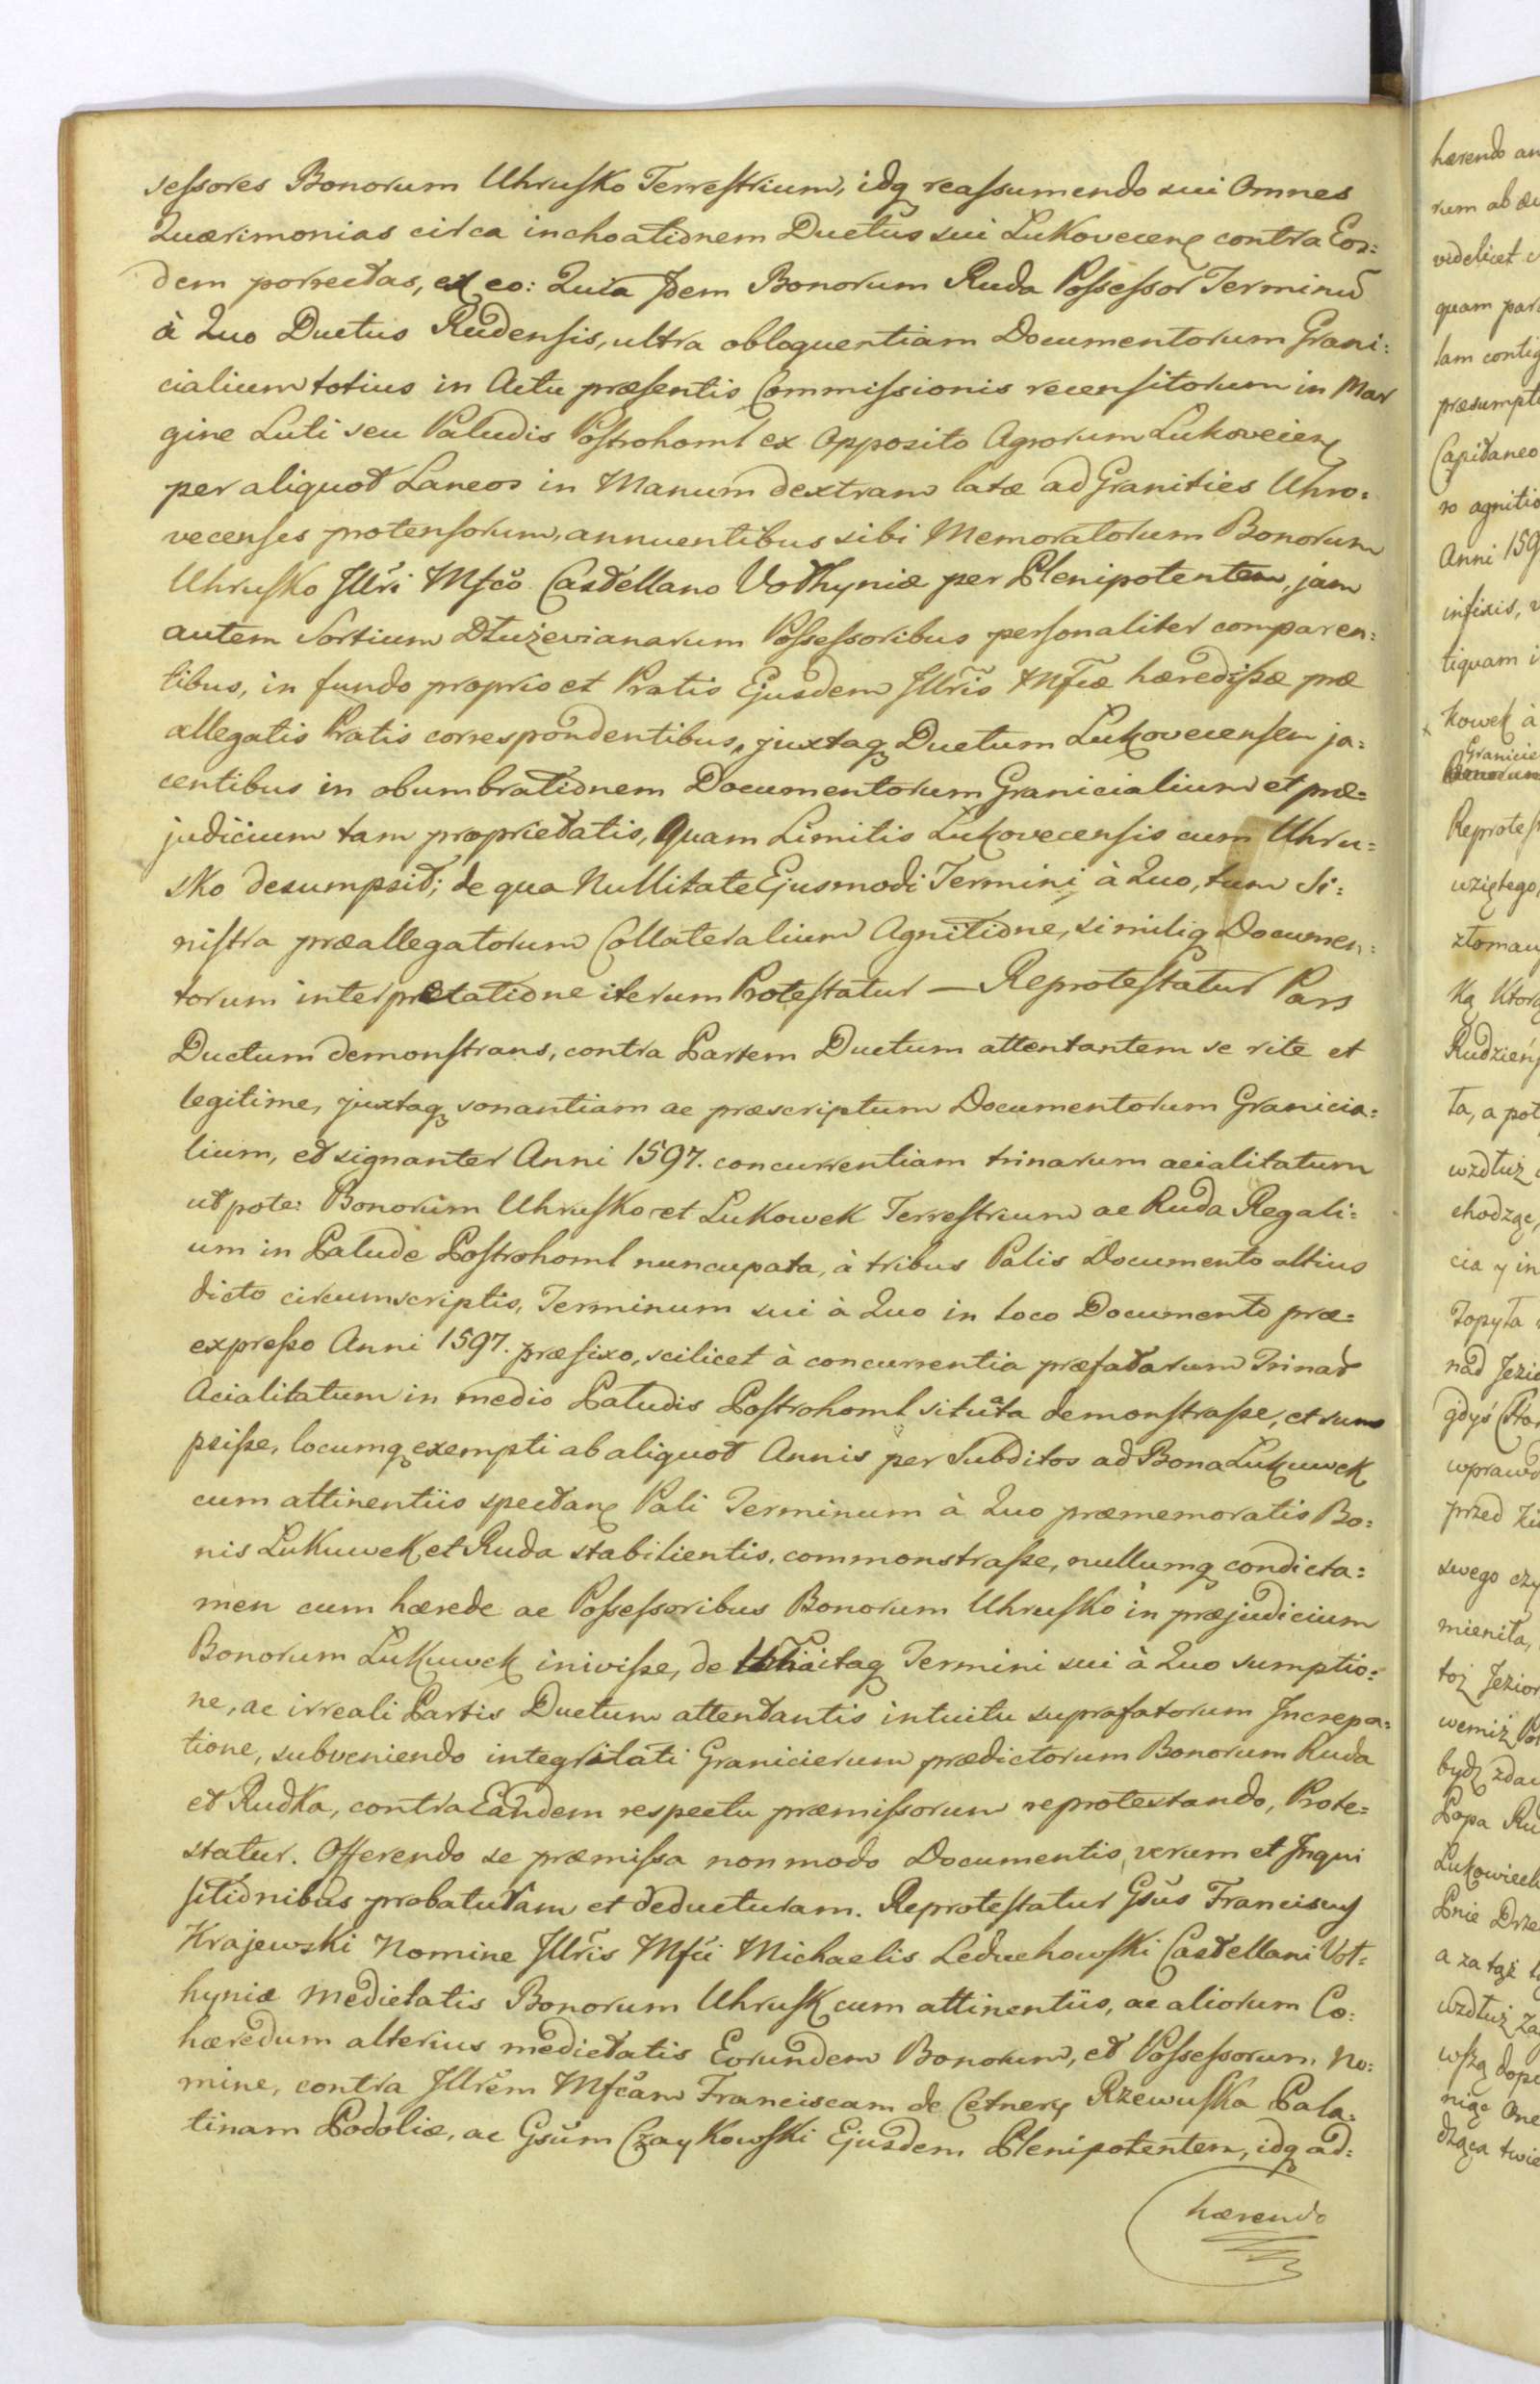 sessores Bonorum Uhrusko Terrestrium, idq reassumendo sui Omnes
Quærimonias circa inchoationem Ductûs sui Lukovecens contra Eos=
dem porrectas, ex eo: Quia Idem Bonorum Ruda Possessor Terminũ
à Quo Ductus Rudensis, ultra obloquentiam Documentorum Grani=
cialium totius in Actu præsentis Commissionis recensitorum in Mar
gine Luti seu Paludis Postrohoml ex Opposito Agrorum Lukoveicen
per aliquot Laneos in Manum dextram latæ ad Granities Uhro=
vecenses protensorum, annuentibus sibi Memoratorum Bonorum
Uhrusko Illri Mfco Castellano Volhyniæ per Plenipotentem, jam
autem Sortium Dłużevianarum Possessoribus personaliter comparen=
tibus, in fundo proprio et Pratis Ejusdem Illris Mfcæ hæredissæ præ
allegatis Pratis correspondentibus, juxtaq Ductum Lukovecensem ja=
centibus in obumbrationem Documentorum Granicialium et præ=
judicium tam proprietatis, Quam Limitis Lukovecensis cum Uhru=
sko desumpsit; de qua Nullitate Ejusmodi Termini à Quo, tum Si=
nistra præallegatorum Collateralium Agnitione, similiq Documen=
torum interpretatione iterum Protestatur — Reprotestatur Pars
Ductum demonstrans, contra Partem Ductum attentantem se rite et
legitime, juxtaq sonantiam ac præscriptum Documentorum Granicia=
lium, et signanter Anni 1597. concurrentiam trinarum acialitatum
ut pote: Bonorum Uhrusko et Lukowek Terrestrium ac Ruda Regali=
um in Palude Postrohoml nuncupata, à tribus Palis Documento altius
dicto circumscriptis, Terminum sui à Quo in loco Documento præ=
expresso Anni 1597. præfixo, scilicet à concurrentia præfatarum Trinar
Acialitatum in medio Paludis Postrohoml situata demonstrasse, et sum
psisse, locumq exempti ab aliquot Annis per Subditos ad Bona Lukuwek
cum attinentiis spectan Pali Terminum à Quo præmemoratis Bo=
nis Lukuwek et Ruda stabilientis, commonstrasse, nullumq condicta=
men cum hærede ac Possessoribus Bonorum Uhrusko in præjudicium
Bonorum Lukuwek inivisse, de itaq Termini sui à Quo sumptio=
ne, ac irreali Partis Ductum attentantis intuitu suprafatorum Increpa=
tione, subveniendo integritati Granicierum prædictorum Bonorum Ruda
et Rudka, contra Eandem respectu præmissorum reprotestando, Prote=
statur. Offerendo se præmissa non modo Documentis, verum et Inqui
sitionibus probaturam et deducturam. Reprotestatur Gsus Franciscus
Krajewski Nomine Illris Mfci Michaelis Leduchowski Castellani Vol=
hyniæ medietatis Bonorum Uhrusk cum attinentiis, ac aliorum Co=
hæredum alterius medietatis Eorundem Bonorum, et Possessorum No=
mine, contra Illrem Mfcam Franciscam de Cetnery Rzewuska Pala=
tinam Podoliæ, ac Gsum Czaykowski Ejusdem Plenipotentem, idq ad=
hærendo
hærendo an
rum ab
videlicet
quam par
tam contig
præsumpt
Capitaneo
ro agnitio
Anni 159
infixis,
tiquam i
kowek à
Granicie
Reprotes
wziętego,
złomau
Ką Ktor
Rudzień
ta, a pot
wzdłuż
chodząc,
cia y in
Topyła
nad Jezio
gdyś
wprawd
przed
swego czy
mienita,
toż Jezior
wemiż
bydź zda
Popa Rud
Lukowieck
Pnie Drze
a za tąż
wzdłuż Za
wszą dope
niąc One
dząca twie